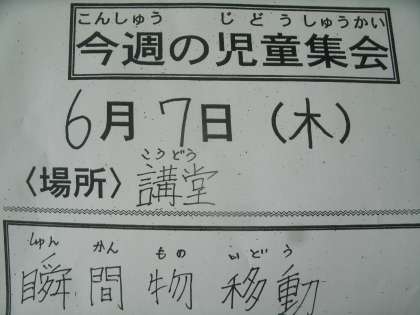 こんしゅう じどうしゅうかい
今週の児童集会
6月7日（木）
こうどう
〈場所〉講堂
しゅん かん もの いどう
瞬間物移動